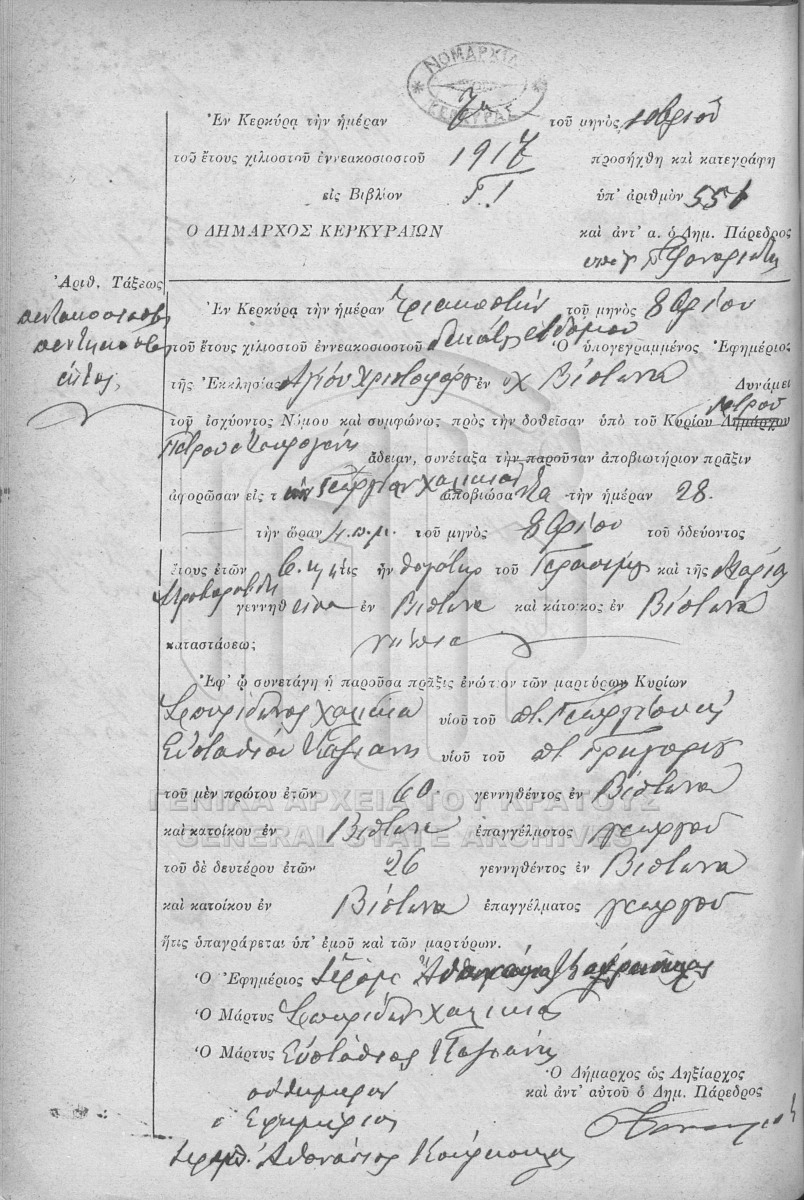 ΝΟΜΑΡΧΙΑ
ΚΕΡΚΥΡΑΣ
Ἐν Κερκύρᾳ τὴν ἡμέραν 7η τοῦ μηνὸς
τοῦ ἔτους χιλιοστοῦ ἐννεακοσιοστοῦ 1917 προσήχθη καὶ κατεγράφη
εἰς Βιβλίον Γ.1 ὑπ' ἀριθμὸν 551
Ο ΔΗΜΑΡΧΟΣ ΚΕΡΚΥΡΑΙΩΝ καὶ ἀντ' α. ὁ Δημ. Πάρεδρος
Ἀριθ. Τάξεως
πεντακοσιοστὸν
Ἐν Κερκύρᾳ τὴν ἡμέραν τριακοστὴν τοῦ μηνὸς 8βρίου
πεντηκοστὸν
τοῦ ἔτους χιλιοστοῦ ἐννεακοσιοστοῦ δεκάτου ἑβδόμου Ὁ ὑπογεγραμμένος Ἐφημέριος
τῆς Ἐκκλησίας Ἁγίου Χριστοφόρου ἐν χ Βίστωνα Δυνάμει
τοῦ ἰσχύοντος Νόμου καὶ συμφώνως πρὸς τὴν δοθεῖσαν ὑπὸ τοῦ Κυρίου Δημάρχου Ἰατροῦ
Πέτρου ἄδειαν, συνέταξα τὴν παροῦσαν ἀποβιωτήριον πρᾶξιν
ἀφορῶσαν εἰς τὴν Γεωργίαν Χαλικιᾶ ἀποβιώσασα τὴν ἡμέραν 28.
τὴν ὥραν 4.π.μ. τοῦ μηνὸς 8βρίου τοῦ ὁδεύοντος
ἔτους ἐτῶν ἥτις ἦν θυγάτηρ τοῦ Γερασίμου καὶ τῆς Μαρίας
γεννηθεῖσα ἐν Βίστωνα καὶ κάτοικος ἐν Βίστωνα
καταστάσεως; νήπιον
Ἐφ' ᾧ συνετάγη ἡ παροῦσα πρᾶξις ἐνώπιον τῶν μαρτύρων Κυρίων
Σπυρίδωνος Χαλικιᾶ υἱοῦ τοῦ ποτ. Γεωργίου
Εὐσταθίου υἱοῦ τοῦ ποτ. Γρηγορίου
τοῦ μὲν πρώτου ἐτῶν 60. γεννηθέντος ἐν Βίστωνα
ΓΕΝΙΚΑ ΑΡΧΕΙΑ ΤΟΥ ΚΡΑΤΟΥΣ
καὶ κατοίκου ἐν Βίστωνα ἐπαγγέλματος γεωργοῦ
GENERAL STATE ARCHIVES
τοῦ δὲ δευτέρου ἐτῶν 26 γεννηθέντος ἐν Βίστωνα
καὶ κατοίκου ἐν Βίστωνα ἐπαγγέλματος γεωργοῦ
ἥτις ὑπαγράφεται ὑπ' ἐμοῦ καὶ τῶν μαρτύρων.
Ὁ Ἐφημέριος
Ὁ Μάρτυς Σπυρίδων Χαλικιας
Ὁ Μάρτυς Εὐστάθιος
Ὁ Δήμαρχος ὡς Ληξίαρχος
καὶ ἀντ' αὐτοῦ ὁ Δημ. Πάρεδρος
αὐθημερον
ὁ Ἐφημέριος
Ἀθανάσιος